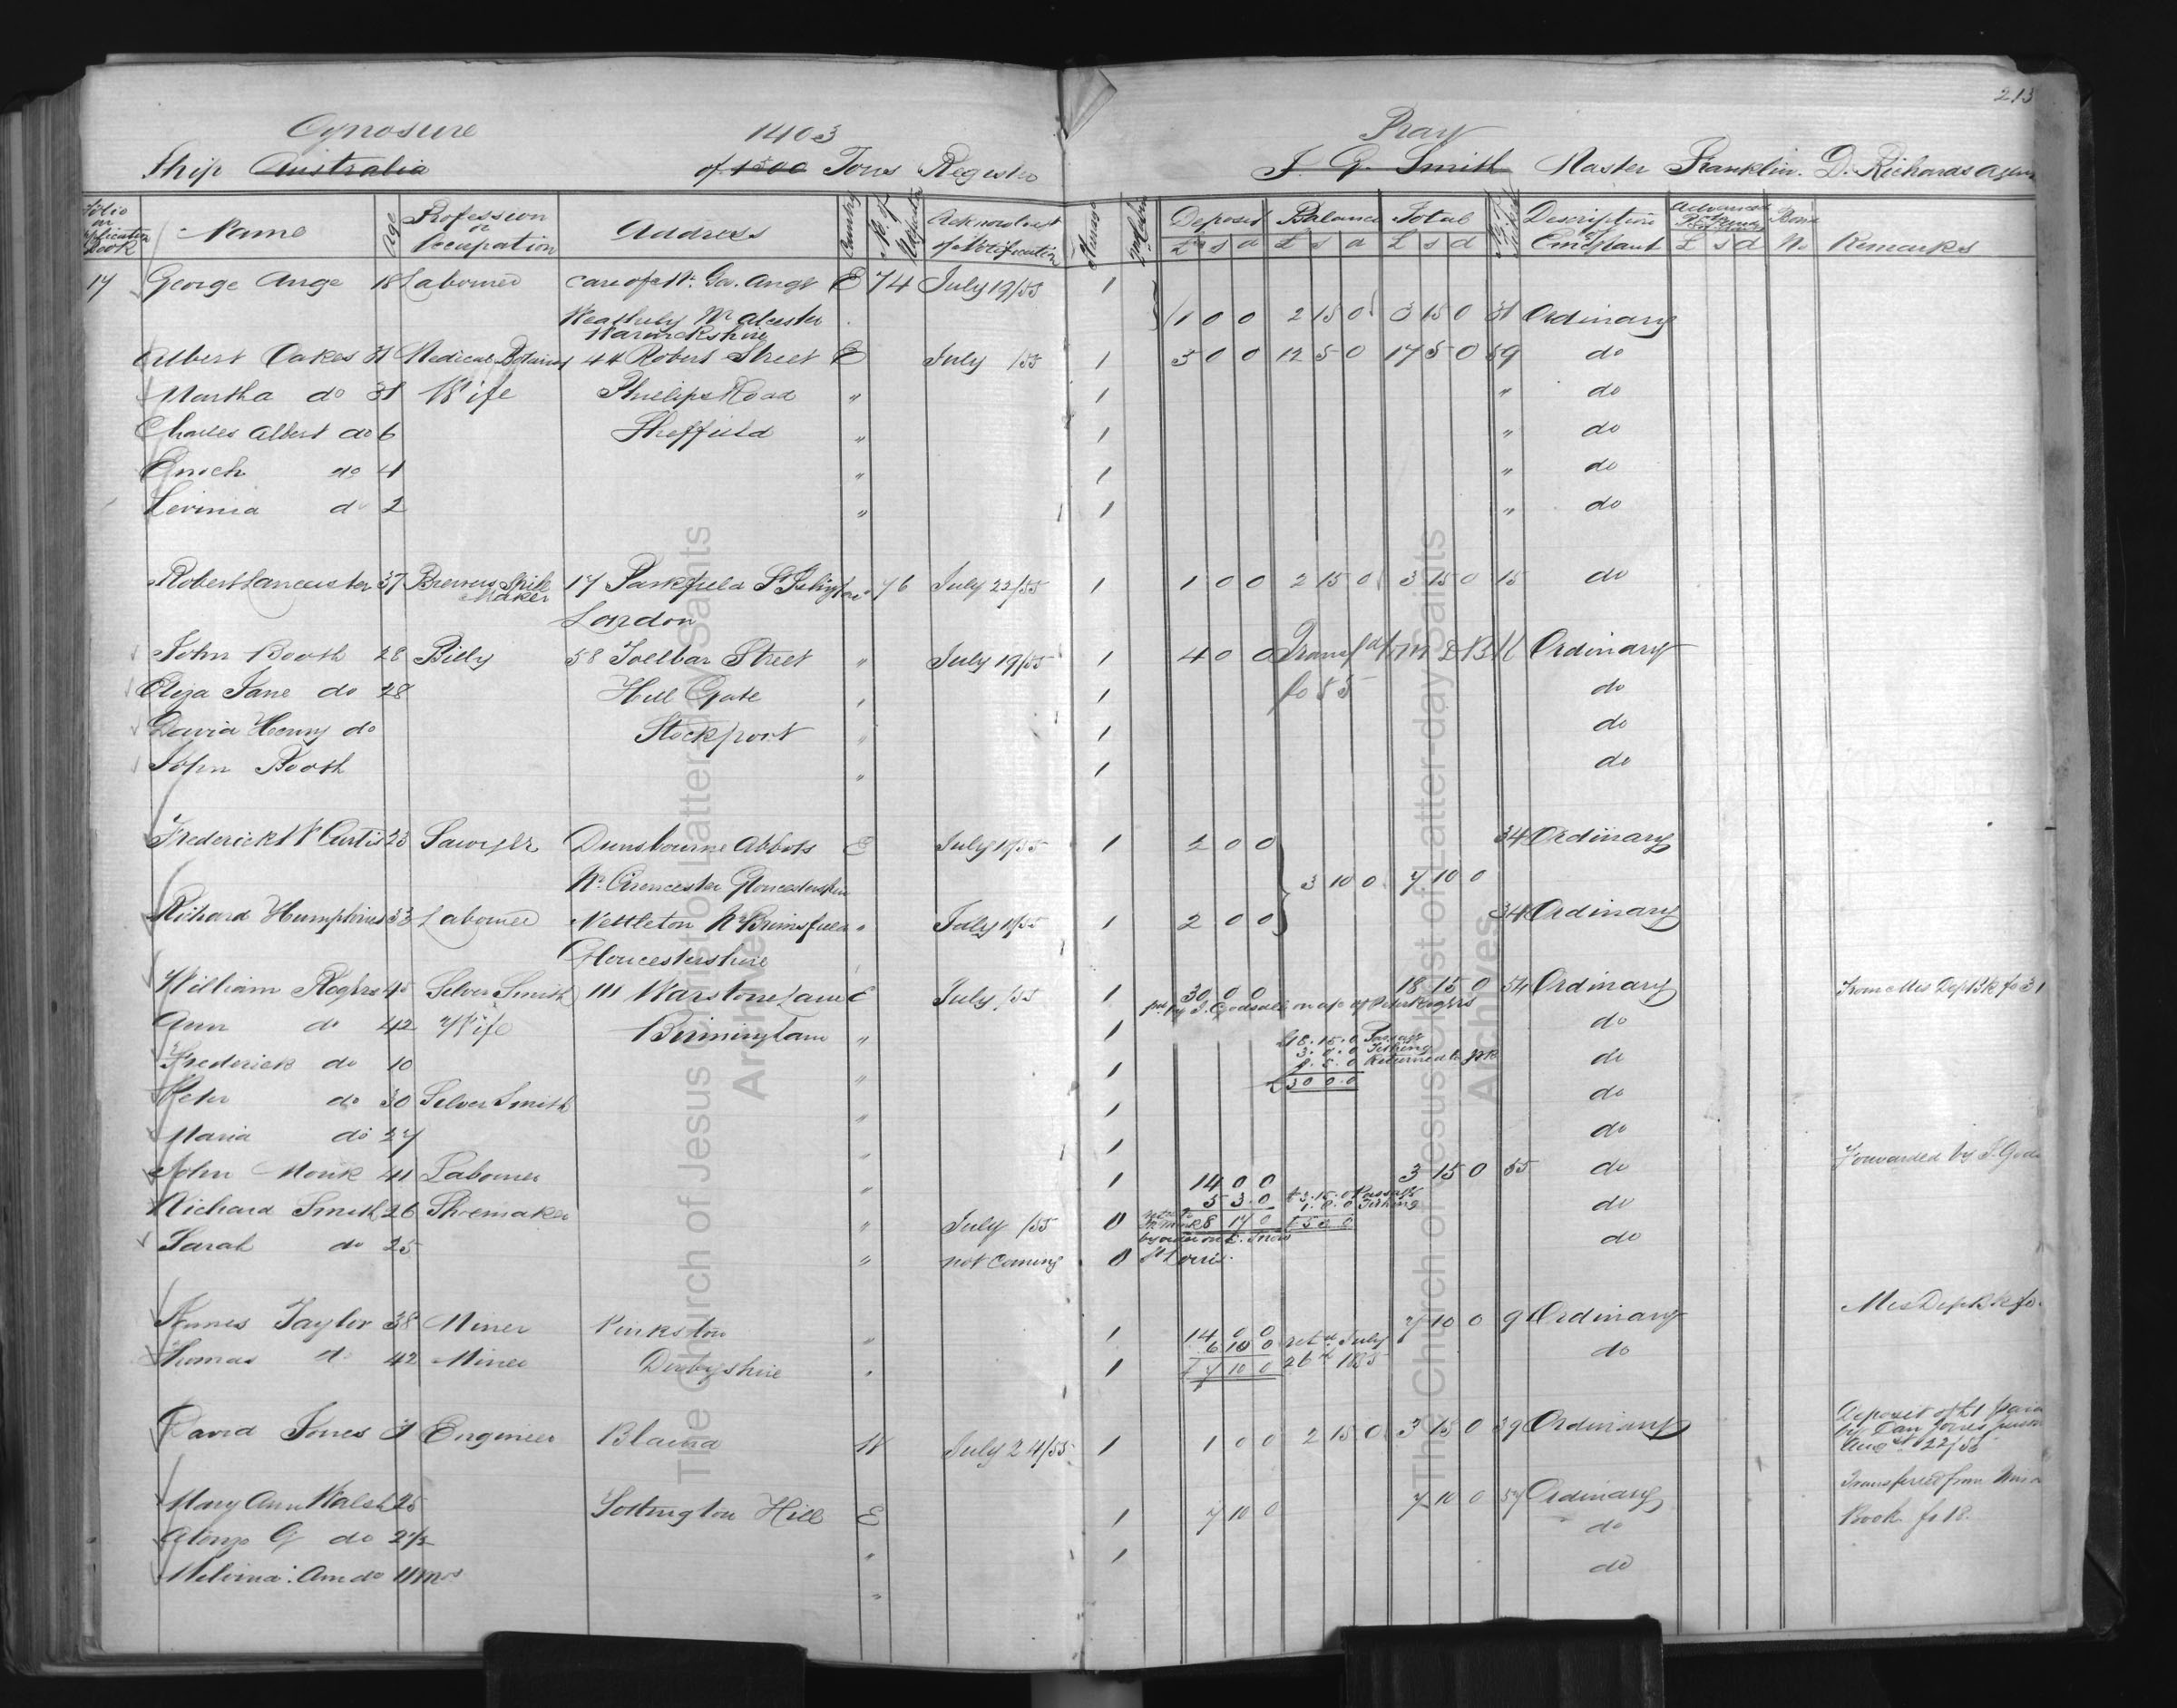 213
Cynosure 1403 Pray
Ship Australia of 1300 Tons Register J. G. Smith Master Franklin. D. Richards Agent
Folio on Application Book Name Age Profession or Occupation Address Country No. of Notification Acknowledgt of Notification Deposit Balance Total Description of Emigrant Advanced Bond Remarks
£ s d £ s d £ s d £ s d No
17 George Ange 18 Labourer care of Mr. Geo. Ange E 74 July 19/55 1
Weathely Nr Alcester 1 0 0 2 15 0 3 15 0 31 Ordinary
Warwickshire
Albert Oakes 31 Medical Botanist 44 Robert Street E July /55 1 5 0 0 12 5 0 17 5 0 59 do
Martha do 31 Wife Philips Road " 1 " do
Charles Albert do 6 Sheffield " 1 " do
Enoch do 4 " 1 " do
Levinia do 2 " 1 " do
Robert Lancaster 37 Brewers Spile Maker 17 Parkfield St Islington " 76 July 22/55 1 1 0 0 2 15 0 3 15 0 15 do
London
John Booth 28 Billy 58 Tollbar Street " July 19/55 1 4 0 0 Transfd to M D B 11 Ordinary
Eliza Jane do 28 Hill Gate " 1 fo 85 do
David Henry do Stockport " 1 do
John Booth " 1 do
Frederick W Curtis 23 Sawyer Dunsbourne Abbots E July 19/55 1 2 0 0 34 Ordinary
Nr. Cirencester Gloucestershire 3 10 0 7 10 0
Richard Humphries 33 Labourer Nettleton Nr Brimsfield " July 19/55 1 2 0 0 34 Ordinary
Gloucestershire
William Rogers 45 Silver Smith 111 Warstone Lane E July /55 1 30 0 0 18 15 0 54 Ordinary From Mis Dept Bk fo 31
pd. by J. Godsall on a/c of Peter Rogers
Ann do 42 Wife Birmingham " 1 do
£18.15.0 Passage
Frederick do 10 " 1 Returned to do
£30 0.0
Peter do 30 Silver Smith " 1 do
Maria do 27 " 1 do
John Monk 41 Labourer " 1 14 0 0 3 15 0 55 do Forwarded by J. Gods
5 3.0 £3.15.0 Passage
Richard Smith 26 Shoemaker " July /55 0 8 17 0 £5 3 0 do
by order on E. Snow
Sarah do 25 " not coming 0 St Louis. do
James Taylor 38 Miner Pinkston " 1 14 0 0 7 10 0 9 Ordinary Mis Dep Bk fo.
6 10 0 retd July
Thomas do 42 Miner Derbyshire " 1 £7 10 0 26th 1855 do
David Jones 31 Engineer Blaina W July 24/55 1 1 0 0 2 15 0 3 15 0 39 Ordinary Deposit of £1 paid
by Dan Jones junior
Augst 22/55
Mary Ann Walsh 25 Tottington Hill E 1 7 10 0 7 10 0 57 Ordinary Transferred from Mis
Alonzo G do 2½ " 1 do Book fo 18.
Melvina Ann do 11 mos " do
The Church of Jesus Christ of Latter-day Saints
Archives
The Church of Jesus Christ of Latter-day Saints
Archives